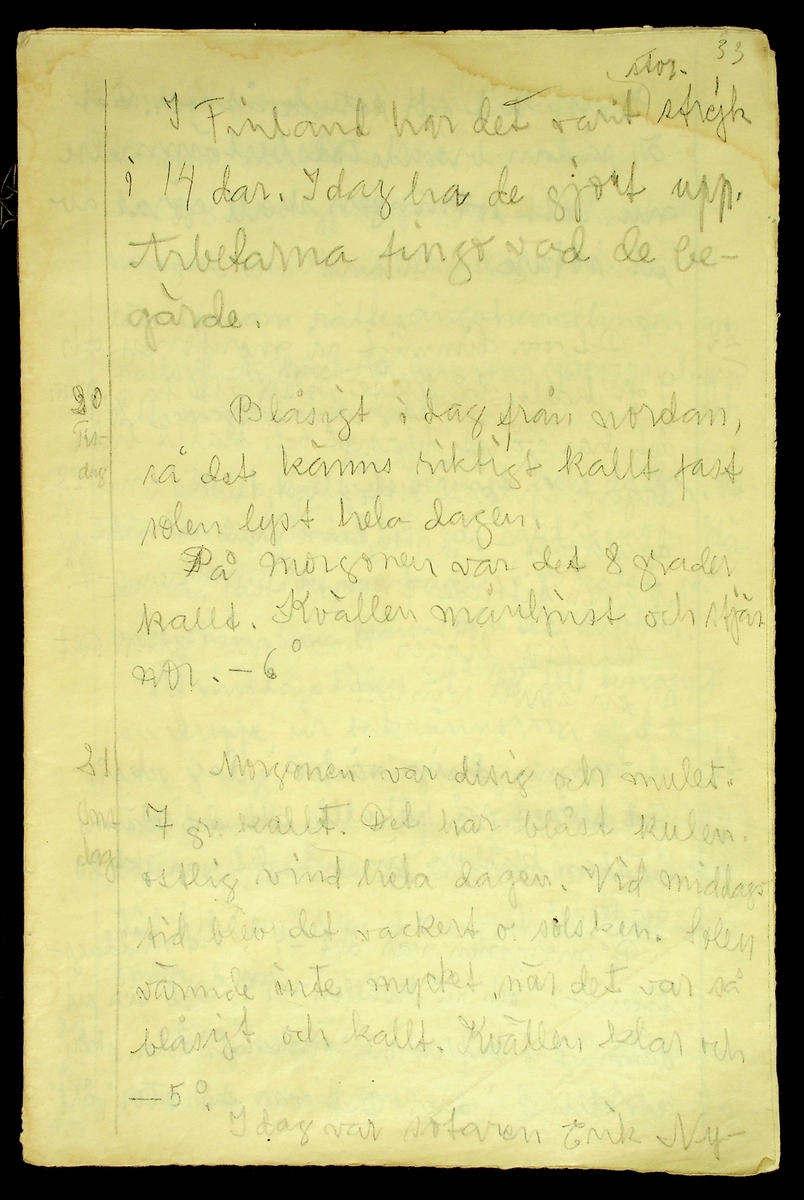 33
stor-
I Finland har det varit strejk
i 14 dar. Idag ha de gjort upp.
Arbetarna fingo vad de be-
gärde.
20
Tis-
dag
Blåsigt i dag från nordan,
så det känns riktigt kallt fast
solen lyst hela dagen.
På morgonen var det 8 grader
kallt. Kvällen månljust och stjär
nor. -6°
21
Ons-
dag
Morgonen var disig och mulet.
7 gr. kallt. Det har blåst kulen
ostlig vind hela dagen. Vid middags
tid blev det vackert o. solsken. Solen
värmde inte mycket, när det var så
blåsigt och kallt. Kvällen klar och
-5°.
Idag var sotaren Erik Ny-